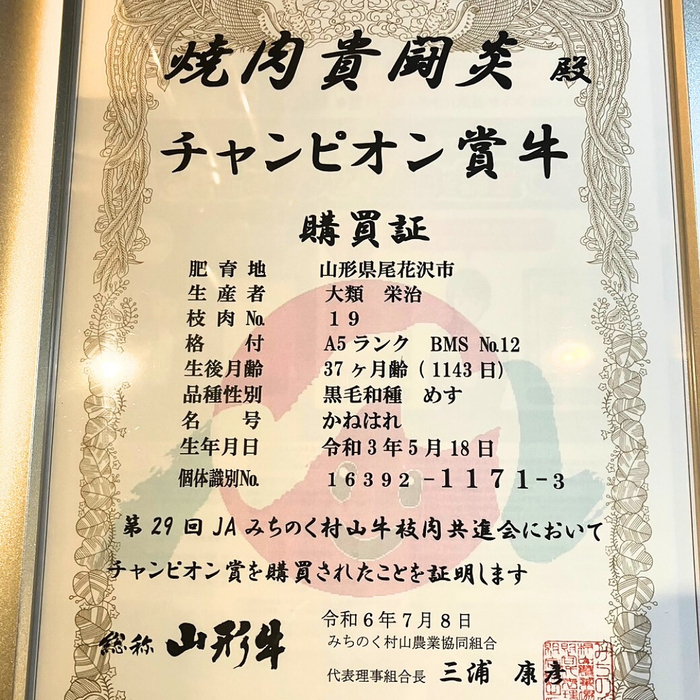 焼肉貴闘炎 殿
チャンピオン賞牛
購買証
肥育地 山形県尾花沢市
生産者 大類 栄治
枝肉No. 19
格付 A5ランク BMS No.12
生後月齢 37ヶ月齢(1143日)
品種性別 黒毛和種 めす
名号 かねはれ
生年月日 令和3年5月18日
個体識別No. 16392-1171-3
第29回JAみちのく村山牛枝肉共進会において
チャンピオン賞を購買されたことを証明します
令和6年7月8日
みちのく村山農業協同組合
総称 山形牛
代表理事組合長 三浦 康彦